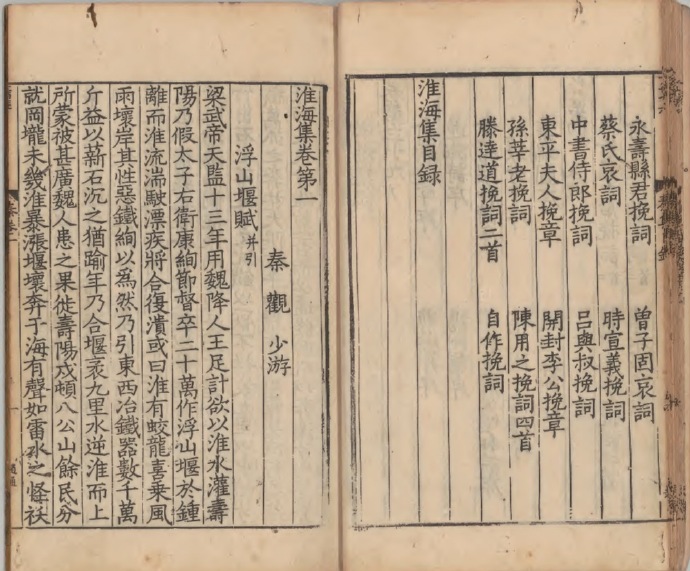 永壽縣君挽詞　曾子固哀詞
蔡氏哀詞　時宣義挽詞
中書侍郎挽詞　呂與叔挽詞
東平夫人挽章　開封李公挽章
孫莘老挽詞　陳用之挽詞四首
滕達道挽詞二首　自作挽詞
淮海集目録
淮海集卷第一
秦觀少游
浮山堰賦并引
梁武帝天監十三年用魏降人王足計欲以淮水灌壽
陽乃假太子右衛康絢節督卒二十萬作浮山堰於鍾
離而淮流湍駛漂疾將合復潰或曰淮有蛟龍喜乗風
雨壞岸其性惡鐵絢以為然乃引東西冶鐵器數千萬
斤益以薪石沉之猶踰年乃合堰袤九里水逆淮而上
所蒙被甚廣魏人患之果徙壽陽戍頓八公山餘民分
就岡壠未幾淮暴漲堰壞奔于海有聲如雷水之怪祅